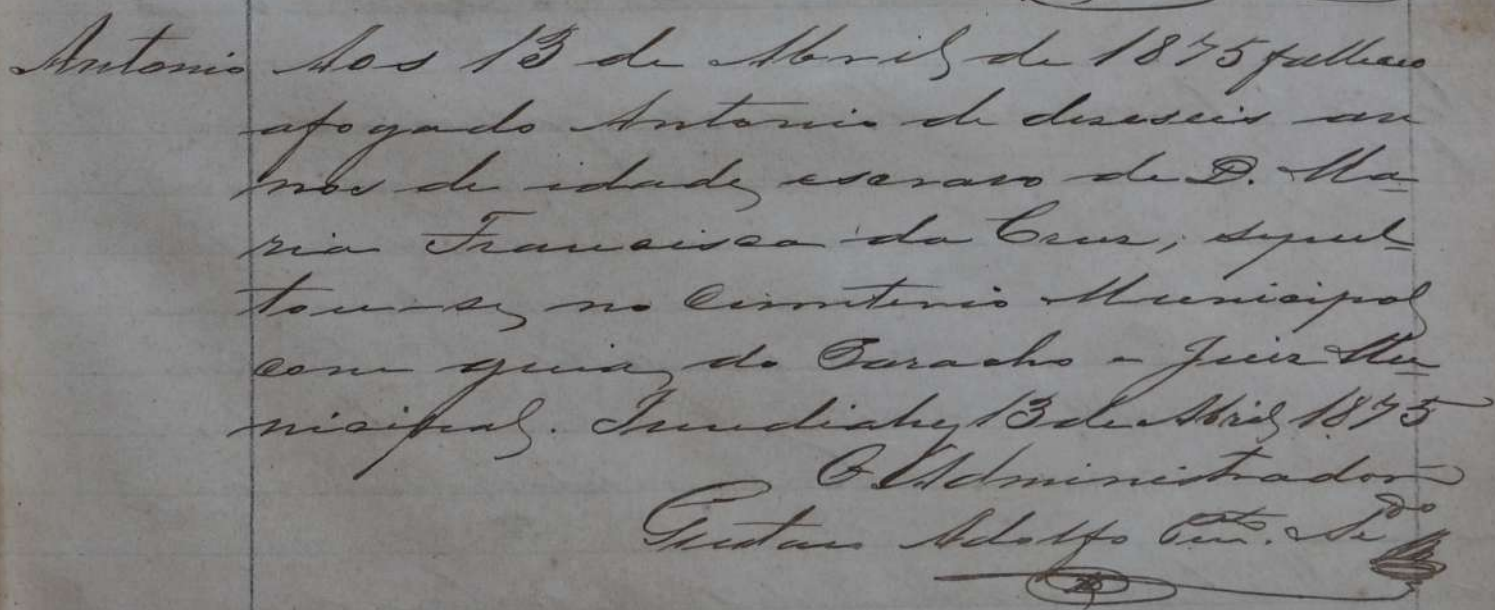 Antonio Aos 13 de Abril de 1875 falleceo
afogado Antonio de deseseis an
nos de idade, escravo de D. Ma=
ria Francisca da Cruz, sepul=
tou-se, no Cimiterio Municipal
com guia, do Parocho e Juiz Mu=
nicipal. Jundiahy 13 de Abril 1875
O Administrador
Gustavo Adolfo